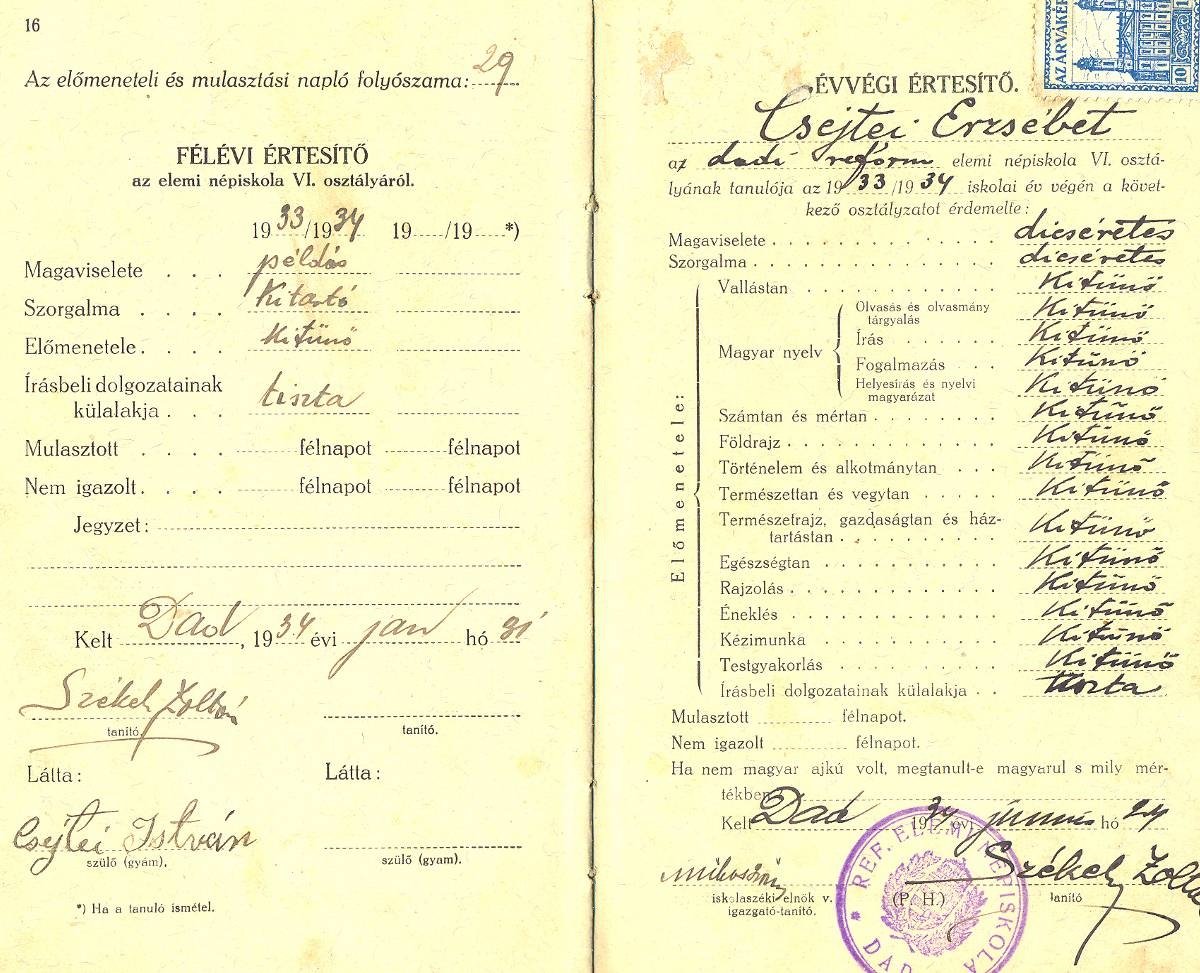 16
Az előmeneteli és mulasztási napló folyószama: 29
FÉLÉVI ÉRTESÍTŐ
az elemi népiskola VI. osztályáról.
1933/1934 19...../19.....*)
Magaviselete . . . példás
Szorgalma . . . . Kitartó
Előmenetele . . . . Kitünő
Írásbeli dolgozatainak
külalakja . . . tiszta
Mulasztott . . . . félnapot félnapot
Nem igazolt . . . . félnapot félnapot
Jegyzet:
Kelt Dad, 1934 évi jan hó 31
Székely Zoltán
tanító. tanító.
Látta: Látta:
Csejtei István
szülő (gyám). szülő (gyam).
*) Ha a tanuló ismétel.
AZ ÁRVÁKÉR
10
ÉVVÉGI ÉRTESÍTŐ.
Csejtei Erzsébet
az dadi reform elemi népiskola VI. osztá-
lyának tanulója az 1933/1934 iskolai év végén a követ-
kező osztályzatot érdemelte:
Magaviselete . . . dicséretes
Szorgalma . . . dicséretes
Előmenetele:
Vallástan . . . Kitünő
Magyar nyelv
Olvasás és olvasmány
tárgyalás Kitünő
Írás . . . Kitünő
Fogalmazás . . Kitünő
Helyesírás és nyelvi
magyarázat Kitünő
Számtan és mértan . . . Kitünő
Földrajz . . . Kitünő
Történelem és alkotmánytan . . . Kitünő
Természettan és vegytan . . . Kitünő
Természetrajz, gazdaságtan és ház-
tartástan . . . Kitünő
Egészségtan . . . Kitünő
Rajzolás . . . Kitünő
Éneklés . . . Kitünő
Kézimunka . . . Kitünő
Testgyakorlás . . . Kitünő
Írásbeli dolgozatainak külalakja . . tiszta
Mulasztott félnapot.
Nem igazolt félnapot.
Ha nem magyar ajkú volt, megtanult-e magyarul s mily mér-
tékben
Kelt Dad 1934 évi június hó 24
Székely Zoltán
iskolaszéki elnök v. (P. H.) tanító
igazgató-tanító.
REF. ELEMI NÉPISKOLA * DAD